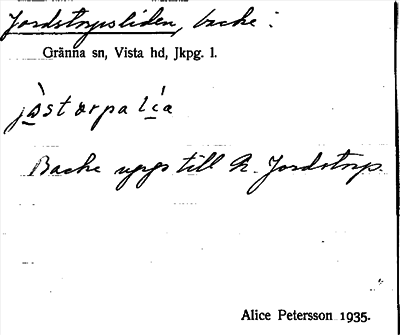 Jordstorpsliden, backe:
Gränna sn, Vista hd, Jkpg. l.
jòstorpa lía
Backe uppe till N. Jordstorp.
Alice Petersson 1935.